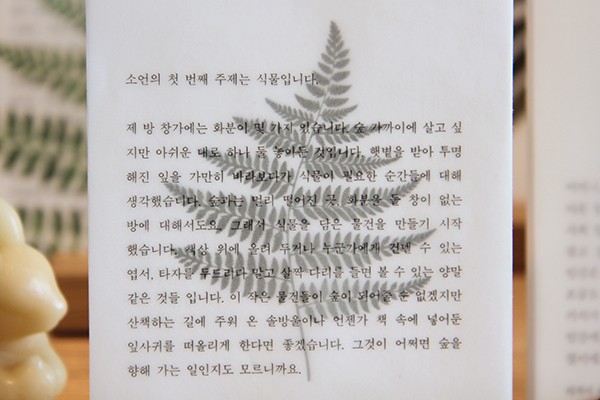 소언의 첫 번째 주제는 식물입니다.
제 방 창가에는 화분이 몇 가지 있습니다. 숲 가까이에 살고 싶
지만 아쉬운 대로 하나 둘 놓아둔 것입니다. 햇볕을 받아 투명
해진 잎을 가만히 바라보다가 식물이 필요한 순간들에 대해
생각했습니다. 숲과는 멀리 떨어진 곳, 화분을 둘 창이 없는
방에 대해서도요. 그래서 식물을 담은 물건을 만들기 시작
했습니다. 책상 위에 올려 두거나 누군가에게 건넬 수 있는
엽서, 타자를 두드리다 말고 살짝 다리를 들면 볼 수 있는 양말
같은 것들 입니다. 이 작은 물건들이 숲이 되어줄 순 없겠지만
산책하는 길에 주워 온 솔방울이나 언젠가 책 속에 넣어둔
잎사귀를 떠올리게 한다면 좋겠습니다. 그것이 어쩌면 숲을
향해 가는 일인지도 모르니까요.